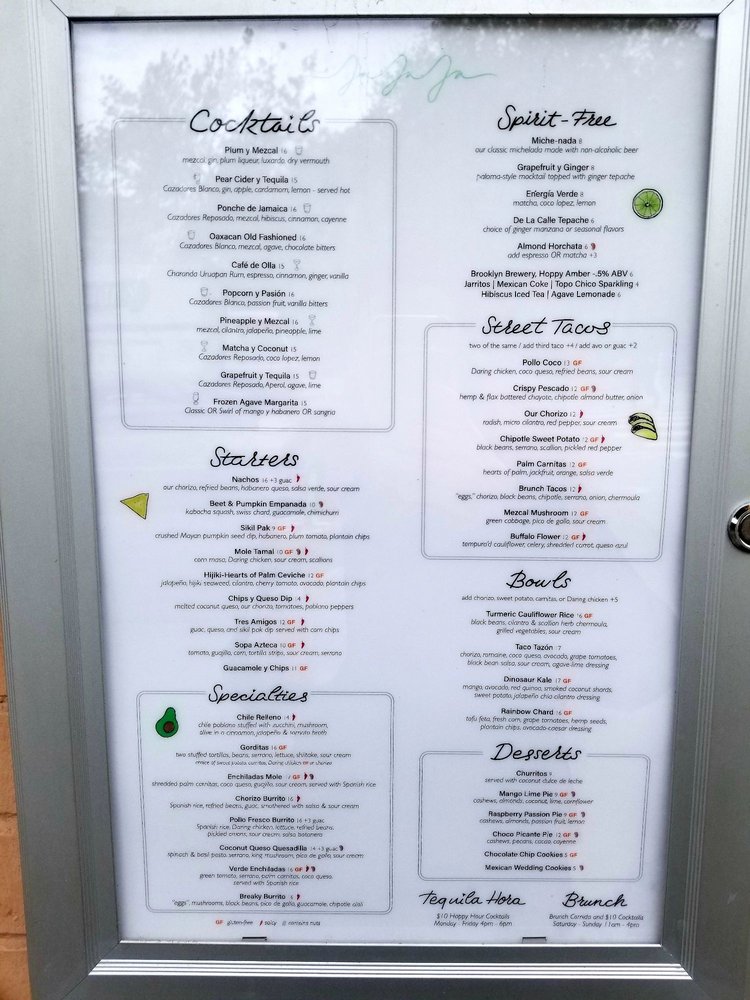 JaJaJa
Cocktails
Plum y Mezcal 16
mezcal, gin, plum liqueur, luxardo, dry vermouth
Pear Cider y Tequila 15
Cazadores Blanco, gin, apple, cardamom, lemon - served hot
Ponche de Jamaica 16
Cazadores Reposado, mezcal, hibiscus, cinnamon, cayenne
Oaxacan Old Fashioned 16
Cazadores Blanco, mezcal, agave, chocolate bitters
Café de Olla 15
Charanda Uruapan Rum, espresso, cinnamon, ginger, vanilla
Popcorn y Pasión 16
Cazadores Blanco, passion fruit, vanilla bitters
Pineapple y Mezcal 16
mezcal, cilantro, jalapeño, pineapple, lime
Matcha y Coconut 15
Cazadores Reposado, coco lopez, lemon
Grapefruit y Tequila 15
Cazadores Reposado, Aperol, agave, lime
Frozen Agave Margarita 15
Classic OR Swirl of mango y habanero OR sangria
Starters
Nachos 16 +3 guac
our chorizo, refried beans, habanero queso, salsa verde, sour cream
Beet & Pumpkin Empanada 10
kabocha squash, swiss chard, guacamole, chimichurri
Sikil Pak 9 GF
crushed Mayan pumpkin seed dip, habanero, plum tomato, plantain chips
Mole Tamal 10 GF
corn masa, Daring chicken, sour cream, scallions
Hijiki-Hearts of Palm Ceviche 12 GF
jalapeño, hijiki seaweed, cilantro, cherry tomato, avocado, plantain chips
Chips y Queso Dip 14
melted coconut queso, our chorizo, tomatoes, poblano peppers
Tres Amigos 12 GF
guac, queso, and sikil pak dip served with corn chips
Sopa Azteca 10 GF
tomato, guajillo, corn, tortilla strips, sour cream, serrano
Guacamole y Chips 11 GF
Specialties
Chile Relleno 14
chile poblano stuffed with zucchini, mushroom,
olive in a cinnamon, jalapeño & tomato broth
Gorditas 16 GF
two stuffed tortillas, beans, serrano, lettuce, shiitake, sour cream
choice of sweet potato, carnitas, Daring chicken OR or chorizo
Enchiladas Mole 17 GF
shredded palm carnitas, coco queso, guajillo, sour cream, served with Spanish rice
Chorizo Burrito 16
Spanish rice, refried beans, guac, smothered with salsa & sour cream
Pollo Fresco Burrito 16 +3 guac
Spanish rice, Daring chicken, lettuce, refried beans,
pickled onions, sour cream, salsa botanera
Coconut Queso Quesadilla 14 +3 guac
spinach & basil pesto, serrano, king mushroom, pico de gallo, sour cream
Verde Enchiladas 16 GF
green tomato, serrano, palm carnitas, coco queso,
served with Spanish rice
Breaky Burrito 16
"eggs", mushrooms, black beans, pico de gallo, guacamole, chipotle aioli
GF gluten-free spicy contains nuts
Spirit-Free
Miche-nada 8
our classic michelada made with non-alcoholic beer
Grapefruit y Ginger 8
paloma-style mocktail topped with ginger tepache
Energía Verde 8
matcha, coco lopez, lemon
De La Calle Tepache 6
choice of ginger manzana or seasonal flavors
Almond Horchata 6
add espresso OR matcha +3
Brooklyn Brewery, Hoppy Amber -.5% ABV 6
Jarritos | Mexican Coke | Topo Chico Sparkling 4
Hibiscus Iced Tea | Agave Lemonade 6
Street Tacos
two of the same / add third taco +4 / add avo or guac +2
Pollo Coco 13 GF
Daring chicken, coco queso, refried beans, sour cream
Crispy Pescado 12 GF
hemp & flax battered chayote, chipotle almond butter, onion
Our Chorizo 12
radish, micro cilantro, red pepper, sour cream
Chipotle Sweet Potato 12 GF
black beans, serrano, scallion, pickled red pepper
Palm Carnitas 12 GF
hearts of palm, jackfruit, orange, salsa verde
Brunch Tacos 12
"eggs," chorizo, black beans, chipotle, serrano, onion, chermoula
Mezcal Mushroom 12 GF
green cabbage, pico de gallo, sour cream
Buffalo Flower 12 GF
tempura'd cauliflower, celery, shredded carrot, queso azul
Bowls
add chorizo, sweet potato, carnitas, or Daring chicken +5
Turmeric Cauliflower Rice 16 GF
black beans, cilantro & scallion herb chermoula,
grilled vegetables, sour cream
Taco Tazón 17
chorizo, romaine, coco queso, avocado, grape tomatoes,
black bean salsa, sour cream, agave-lime dressing
Dinosaur Kale 17 GF
mango, avocado, red quinoa, smoked coconut shards,
sweet potato, jalapeño chia cilantro dressing
Rainbow Chard 16 GF
tofu feta, fresh corn, grape tomatoes, hemp seeds,
plantain chips, avocado-caesar dressing
Desserts
Churritos 9
served with coconut dulce de leche
Mango Lime Pie 9 GF
cashews, almonds, coconut, lime, cornflower
Raspberry Passion Pie 9 GF
cashews, almonds, passion fruit, lemon
Choco Picante Pie 12 GF
cashews, pecans, cacao, cayenne
Chocolate Chip Cookies 5 GF
Mexican Wedding Cookies 5
Tequila Hora
$10 Happy Hour Cocktails
Monday - Friday 4pm - 6pm
Brunch
Brunch Comida and $10 Cocktails
Saturday - Sunday 11am - 4pm